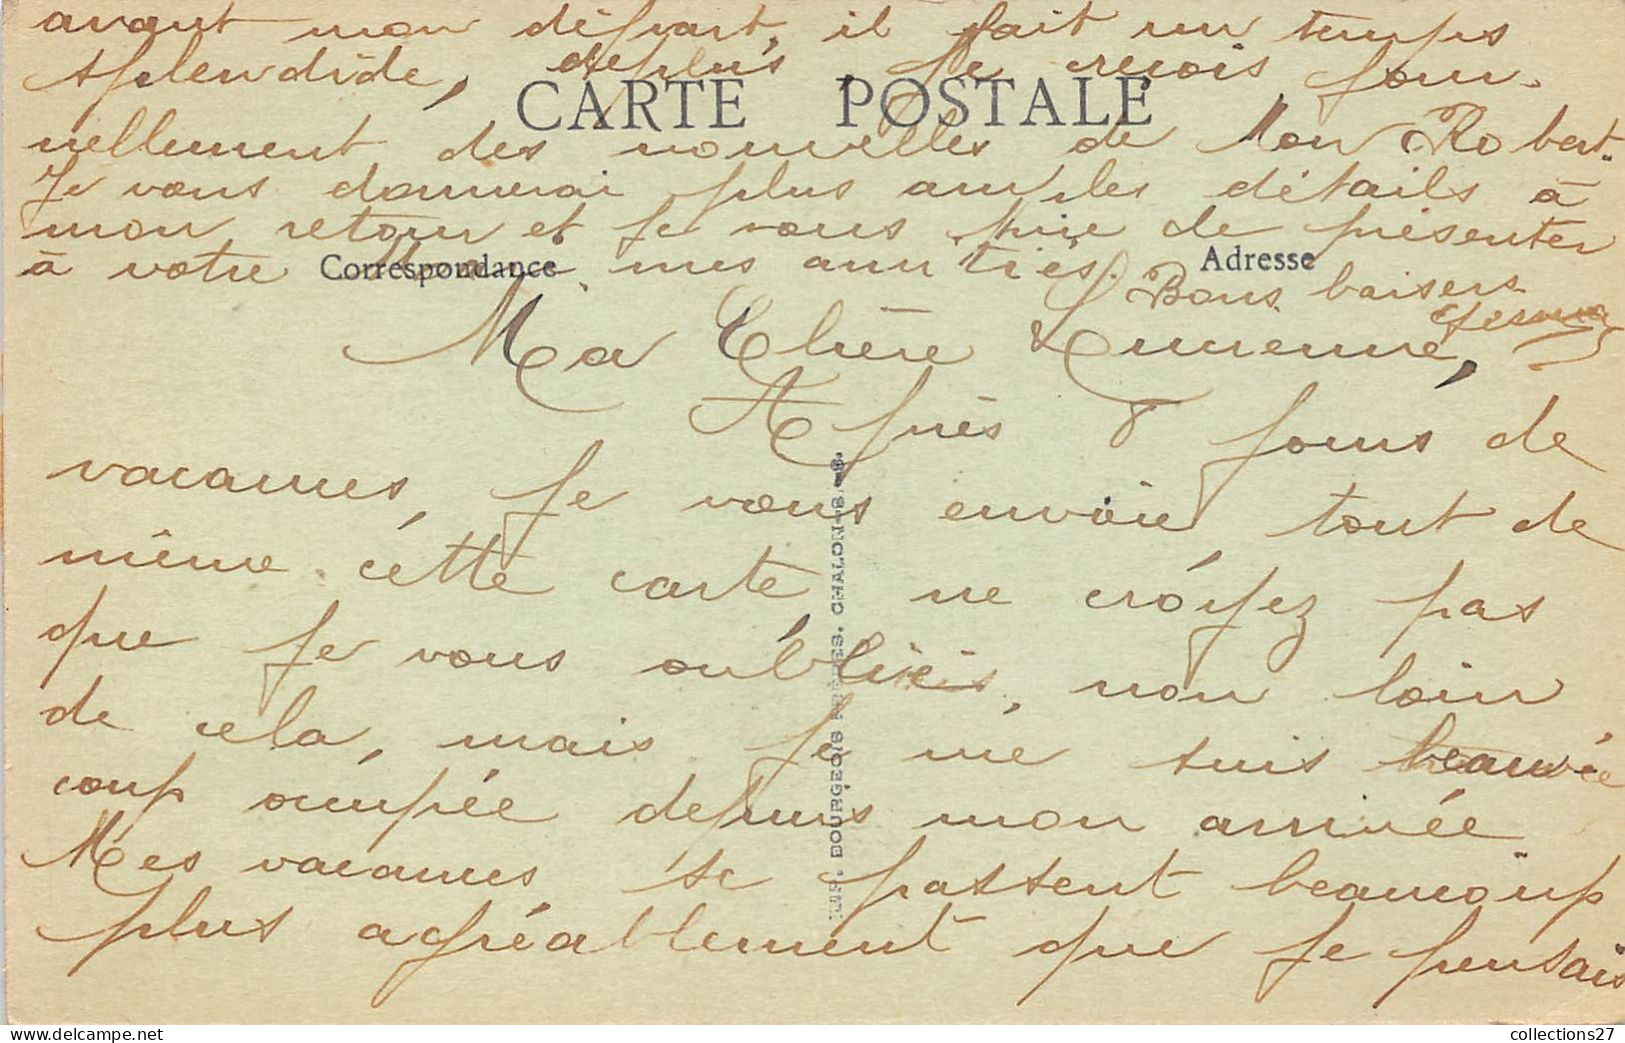 avant mon départ, il fait un temps
splendide, deplus, je reçois jour-
CARTE POSTALE
nellement des nouvelles de mon Robert.
Je vous donnerai plus amples détails à
mon retour et je vous prie de présenter
à votre mes amitiés.
Correspondance
Adresse
Bons baisers
Ma Chère Lucienne,
Après 8 jours de
vacances, je vous envoie tout de
même cette carte, ne croyez pas
que je vous oubliais, non loin
de cela, mais je me suis beau
coup occupée depuis mon arrivée.
Mes vacances se passent beaucoup
plus agréablement que je pensais
IMP. BOURGEOIS FRÈRES. CHALON-S/-S.
collections27